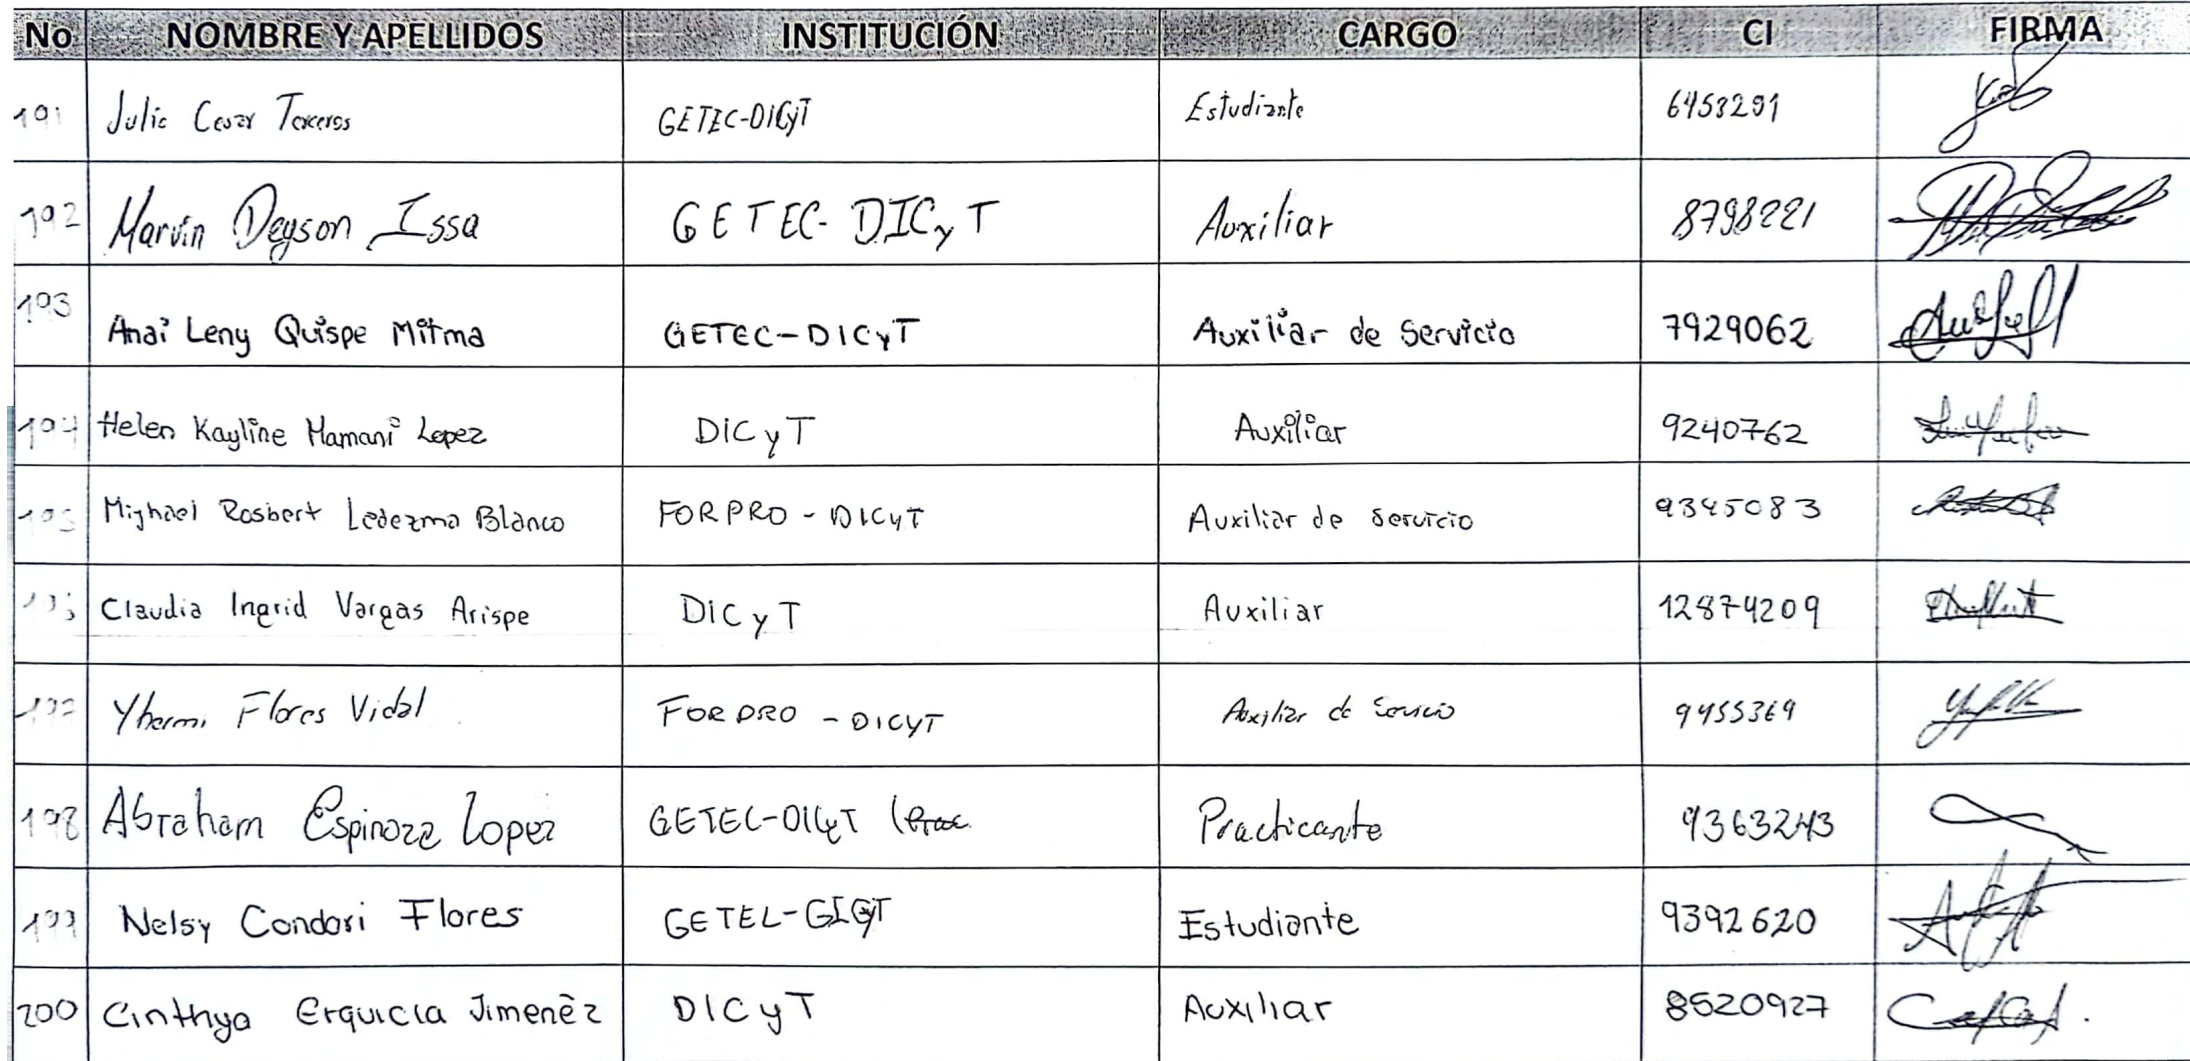 No NOMBRE Y APELLIDOS INSTITUCIÓN CARGO CI FIRMA
191 Julio Cesar Terceros GETEC-DICyT Estudiante 6453291
192 Marvin Deyson Issa GETEC-DICyT Auxiliar 8798221
193 Anai Leny Quispe Mitma GETEC-DICyT Auxiliar de Servicio 7929062
194 Helen Kayline Mamani Lopez DICyT Auxiliar 9240762
195 Mijhael Rosbert Ledezma Blanco FORPRO-DICyT Auxiliar de servicio 9345083
196 Claudia Ingrid Vargas Arispe DICyT Auxiliar 12874209
197 Yhermi Flores Vidal FORPRO-DICYT Auxiliar de Servicio 9455369
198 Abraham Espinoza Lopez GETEC-DICyT Practicante 9363243
199 Nelsy Condori Flores Estudiante 9392620
200 Cinthya Erquicia Jimenez DICyT Auxiliar 8520927